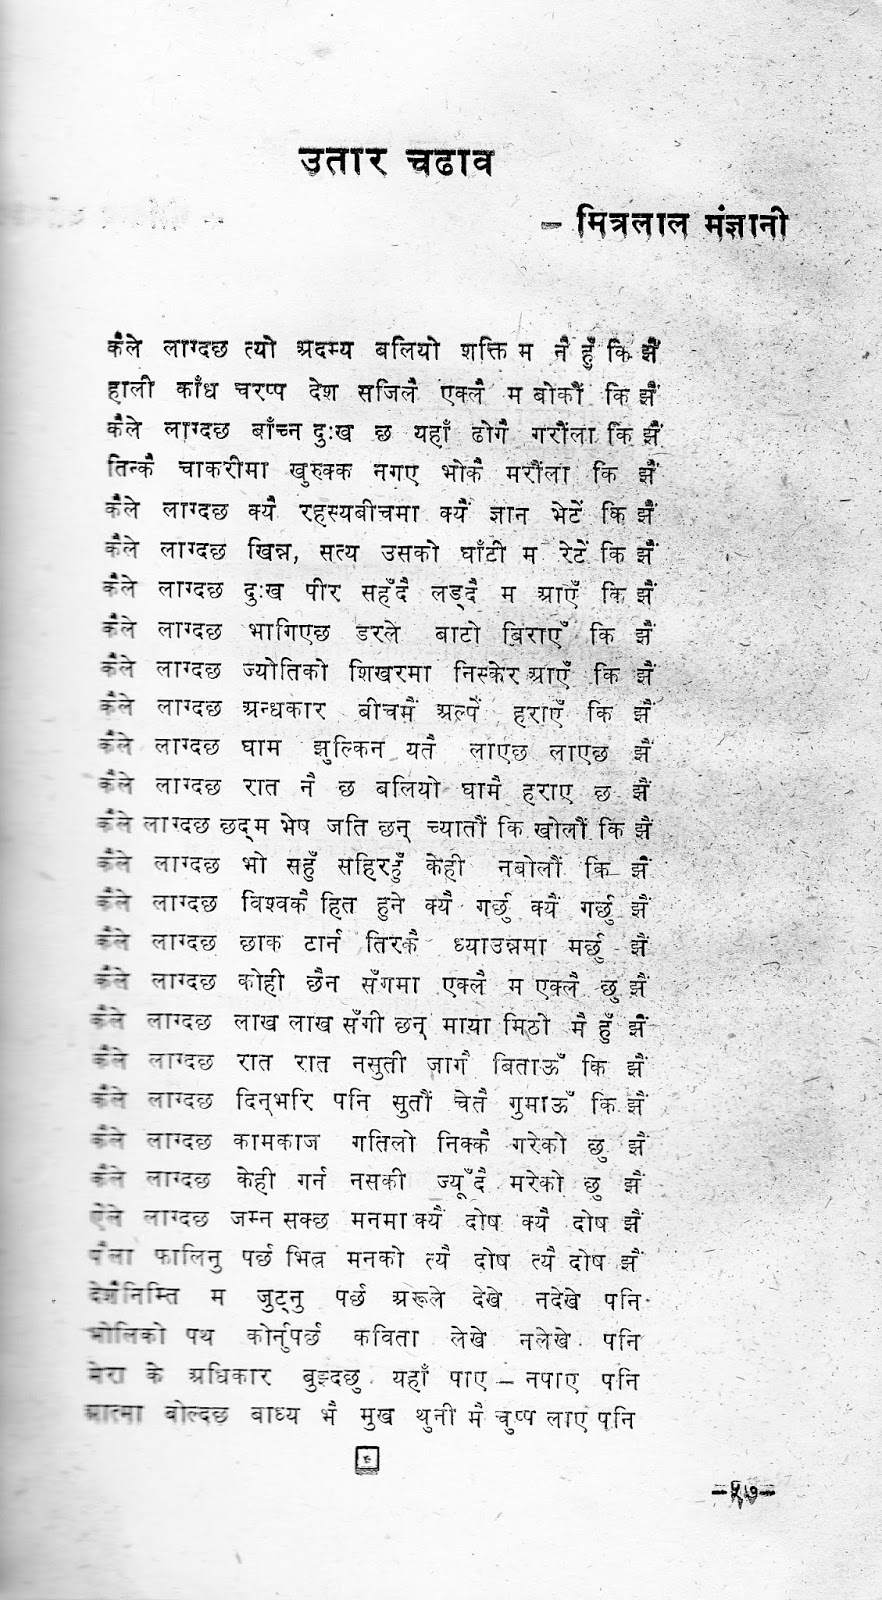 उतार चढाव
– मित्रलाल मंज्ञानी
कैले लाग्दछ त्यो अदम्य बलियो शक्ति म नै हुँ कि झैं
हाली काँध चरप्प देश सजिलै एक्लै म बोकौं कि झैं
कैले लाग्दछ बाँच्न दुःख छ यहाँ ढोगै गरौंला कि झैं
तिन्कै चाकरीमा खुरुक्क नगए भोकै मरौंला कि झैं
कैले लाग्दछ क्यै रहस्यबीचमा क्यैं ज्ञान भेटें कि झैं
कैले लाग्दछ खिन्न, सत्य उसको घाँटी म रेटें कि झैं
कैले लाग्दछ दुःख पीर सहँदै लड्दै म आएँ कि झैं
कैले लाग्दछ भागिएछ डरले बाटो बिराएँ कि झैं
कैले लाग्दछ ज्योतिको शिखरमा निस्केर आएँ कि झैं
कैले लाग्दछ अन्धकार बीचमैं अल्पें हराएँ कि झैं
कैले लाग्दछ घाम झुल्किन यतै लाएछ लाएछ झैं
कैले लाग्दछ रात नै छ बलियो घामै हराए छ झैं
कैले लाग्दछ छद्म भेष जति छन् च्यातौं कि खोलौं कि झैं
कैले लाग्दछ भो सहुँ सहिरहुँ केही नबोलौं कि झैं
कैले लाग्दछ विश्वकै हित हुने क्यै गर्छु क्यै गर्छु झैं
कैले लाग्दछ छाक टार्न तिरकै ध्याउन्नमा मर्छु झैं
कैले लाग्दछ कोही छैन सँगमा एक्लै म एक्लै छु झैं
कैले लाग्दछ लाख लाख सँगी छन् माया मिठो मै हुँ झैं
कैले लाग्दछ रात रात नसुती जागै बिताऊँ कि झैं
कैले लाग्दछ दिन्भरि पनि सुतौं चेतै गुमाऊँ कि झैं
कैले लाग्दछ कामकाज गतिलो निक्कै गरेको छु झैं
कैले लाग्दछ केही गर्न नसकी ज्यूँदै मरेको छु झैं
ऐले लाग्दछ जम्न सक्छ मनमा क्यै दोष क्यै दोष झैं
पैला फालिनु पर्छ भित्र मनको त्यै दोष त्यै दोष झैं
देशैनिम्ति म जुट्नु पर्छ अरूले देखे नदेखे पनि
भोलिको पथ कोर्नुपर्छ कविता लेखे नलेखे पनि
मेरा के अधिकार बुझ्दछु यहाँ पाए – नपाए पनि
आत्मा बोल्दछ बाध्य भै मुख थुनी मै चुप्प लाए पनि